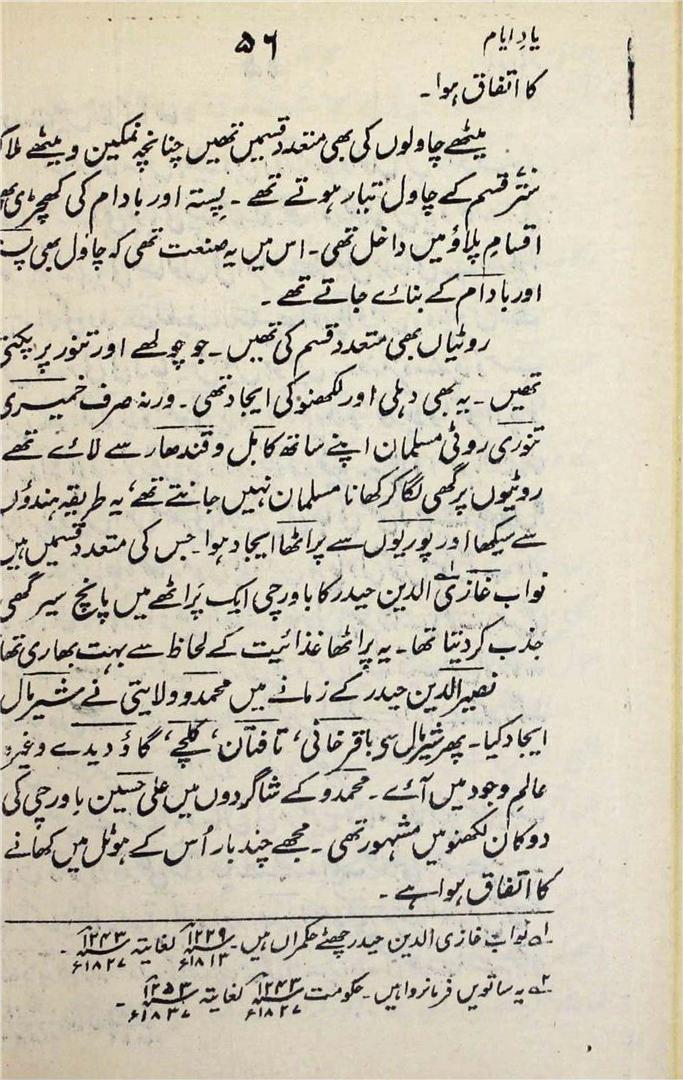 یادِ ایام
۵۶
کا اتفاق ہوا۔
میٹھے چاولوں کی بھی متعدد قسمیں تھیں چنانچہ نمکین و میٹھے ملا
ستّر قسم کے چاول تیار ہوتے تھے۔ پستہ اور بادام کی کھچڑی بھی
اقسامِ پلاؤ میں داخل تھی۔ اس میں یہ صنعت تھی کہ چاول بھی
اور بادام کے بنائے جاتے تھے۔
روٹیاں بھی متعدد قسم کی تھیں۔ جو چولھے اور تنور پر پکتی
تھیں۔ یہ بھی دہلی اور لکھنؤ کی ایجاد تھی۔ ورنہ صرف خمیری
تنوری روٹی مسلمان اپنے ساتھ کابل و قندھار سے لائے تھے
روٹیوں پر گھی لگا کر کھانا مسلمان نہیں جانتے تھے، یہ طریقہ ہندوؤں
سے سیکھا اور پوریوں سے پراٹھا ایجاد ہوا۔ جس کی متعدد قسمیں ہیں
نواب غازی۱ الدین حیدر کا باورچی ایک پَراٹھے میں پانچ سیر گھی
جذب کر دیتا تھا۔ یہ پراٹھا غذائیت کے لحاظ سے بہت بھاری تھا
نصیر الدین حیدر کے زمانے میں محمدو ولایتی نے شیر مال
ایجاد کیا۔ پھر شیر مال سی باقر خانی، تافتان، کلچے، گاؤ دیدے وغیرہ
عالمِ وجود میں آئے۔ محمدو کے شاگردوں میں علی حسین باورچی کی
دوکان لکھنؤ میں مشہور تھی۔ مجھے چند بار اُس کے ہوٹل میں کھانے
کا اتفاق ہوا ہے۔
۱؎ نواب غازی الدین حیدر چھٹے حکمراں ہیں۔ ۱۲۲۹ ۱۸۱۳ء لغایتہ ۱۲۴۳ ۱۸۲۷ء۔
۲؎ یہ ساتویں فرمانروا ہیں۔ حکومت ۱۲۴۳ ۱۸۲۷ء لغایتہ ۱۲۵۳ ۱۸۳۷ء۔